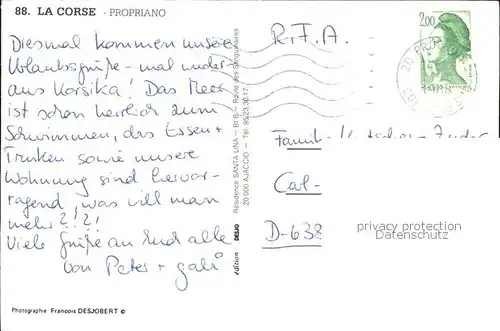 88. LA CORSE - PROPRIANO
Diesmal kommen unsere
Urlaubsgrüße - mal
aus Korsika! Das Meer
ist schon herrlich zum
Schwimmen, das Essen +
Trinken sowie unsere
Wohnung sind hervor-
ragend, was will man
mehr?!?!
Viele Grüße an Euch alle
von Peter + Gabi
Photographie Francois DESJOBERT ©
édition DESJO
Résidence SANTA LINA - Bt B - Route des Sanguinaires
20 000 AJACCIO - Tél. 95.23.30.17
R.F.A.
2,00
Famil
Cal-
D-638
privacy protection
Datenschutz